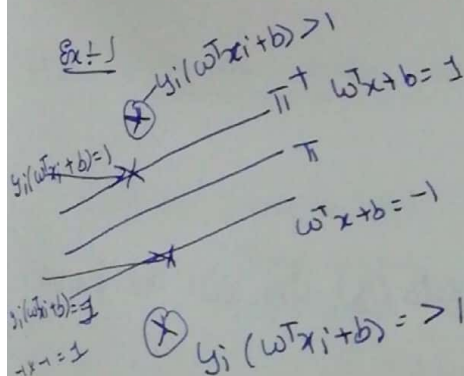 Ex:- 1
yi(wTxi+b)>1
π+ wTx+b=1
yi(wTxi+b)=1
π
wTx+b=-1
yi(wTxi+b)=1
-1x-1=1
yi(wTxi+b)=>1